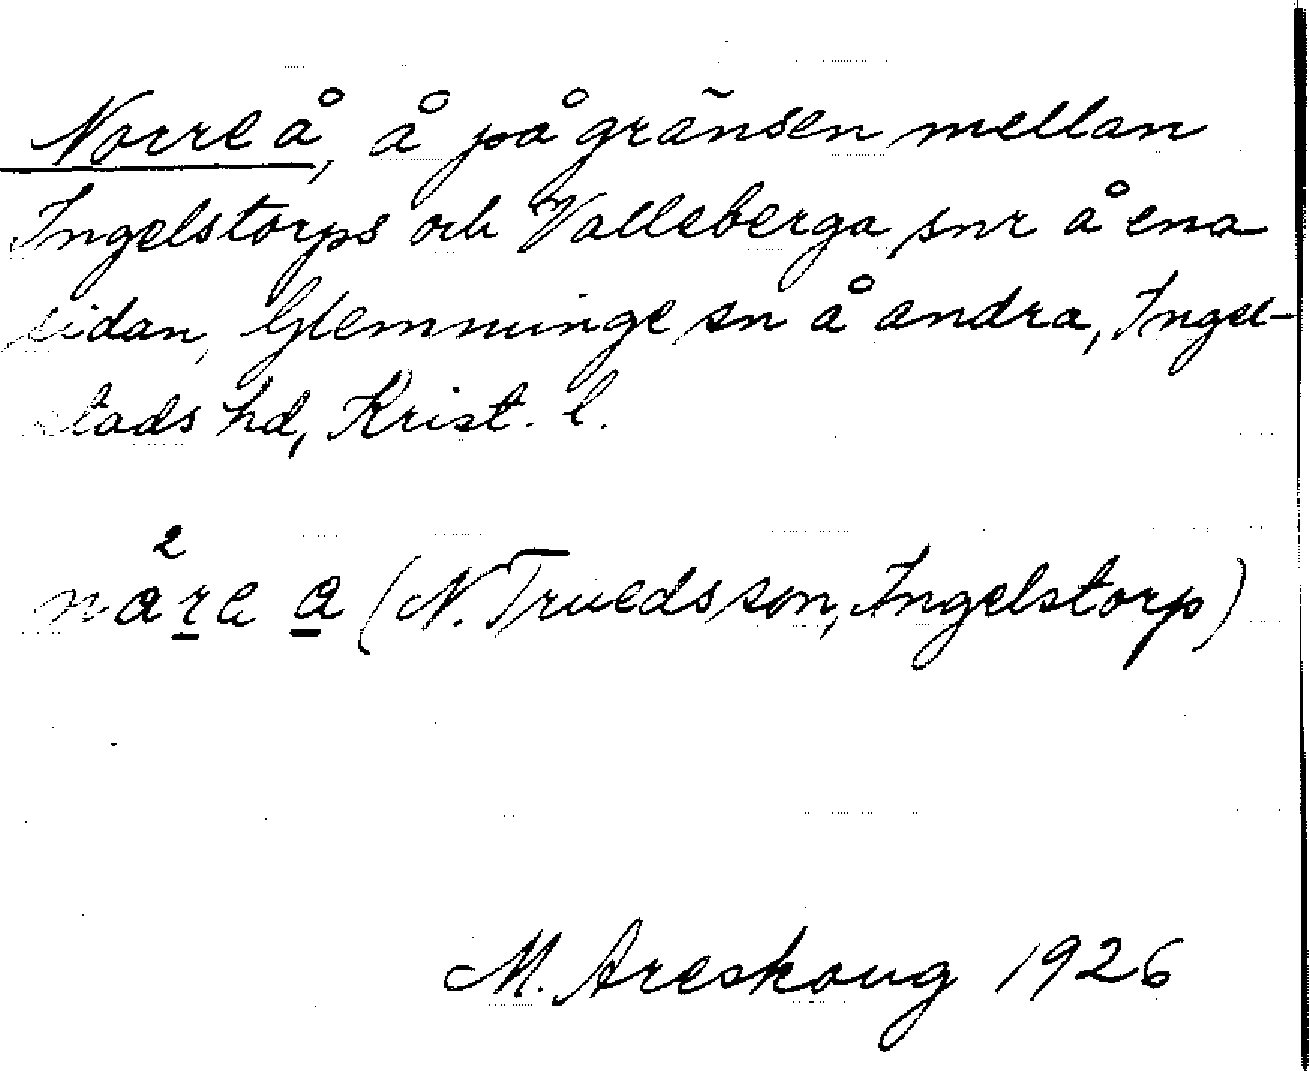 Norre å, å på gränsen mellan
Ingelstorps och Valleberga snr å ena
sidan, Glemminge sn å andra, Ingel-
stads hd, Krist. l.
nå²re a (N. Truedsson, Ingelstorp)
M. Areskoug 1926